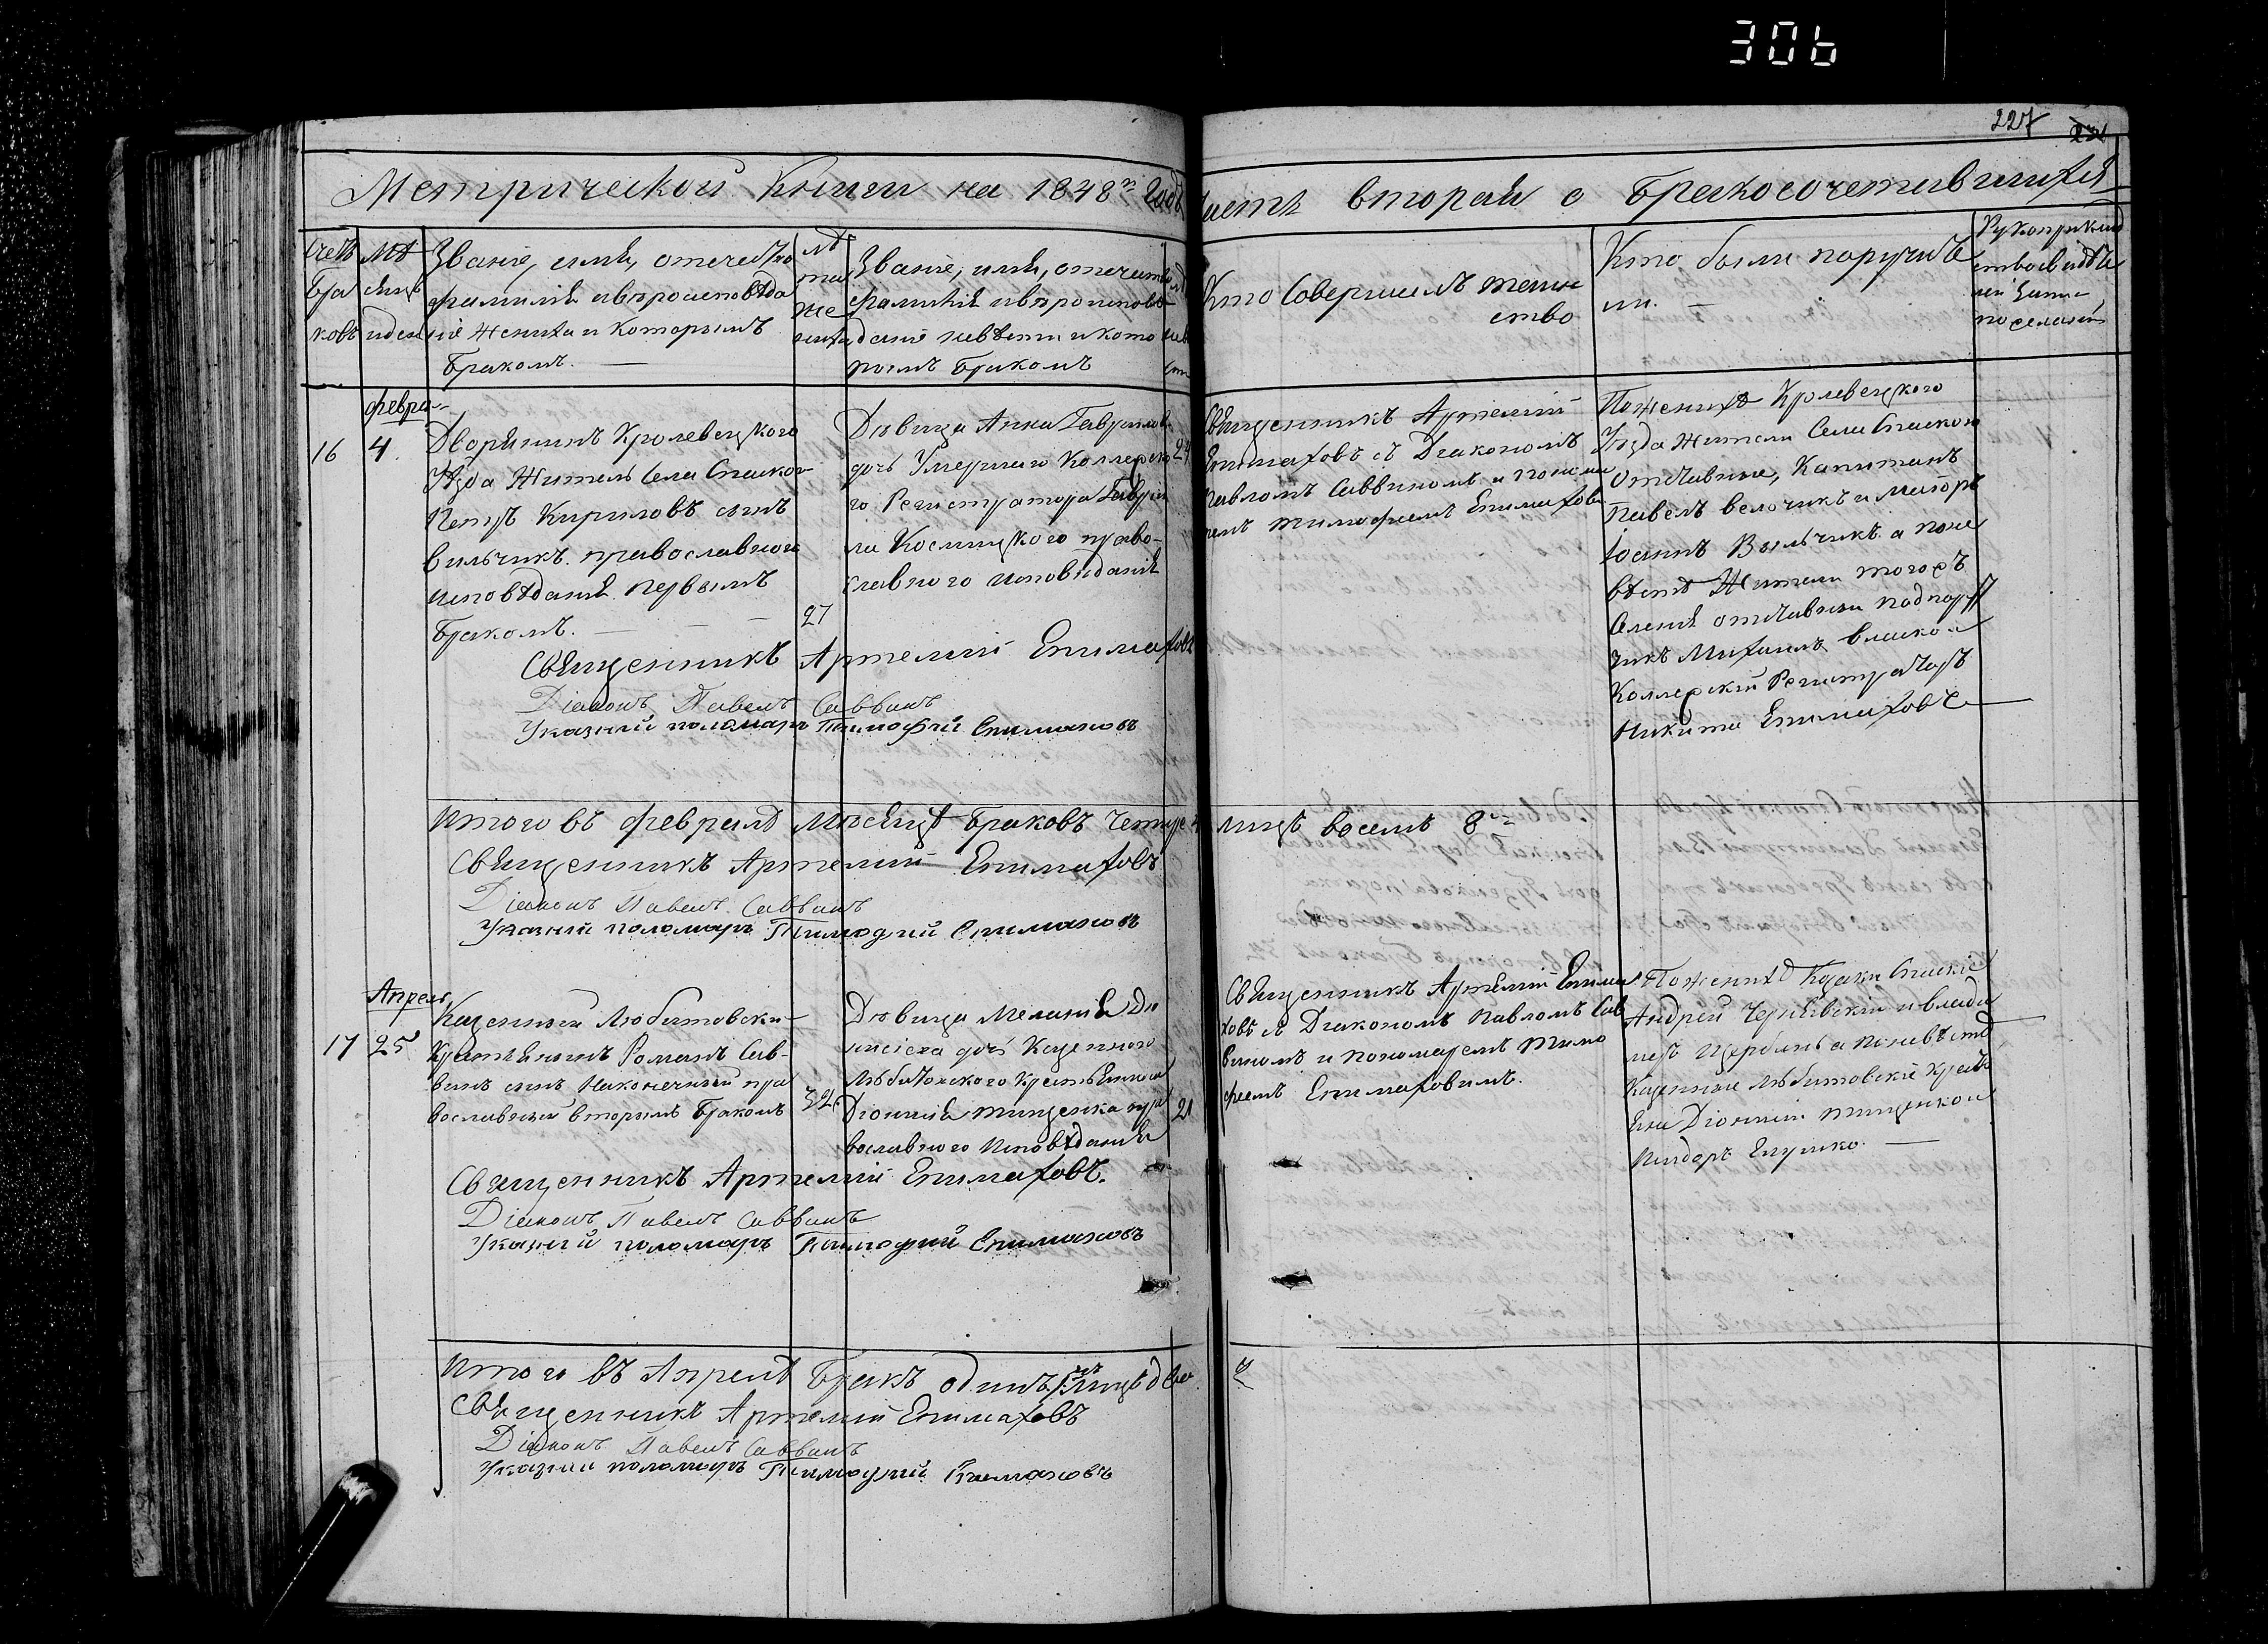 306
227
Метрической Книги на 1848й Годъ
часть вторая о Бракосочетавшихся
Счетъ
Бра
ковъ
Мѣ
сяцъ
и день
Званіе, имя, отечество
фамилія и вѣроисповѣда
ніе жениха и Которымъ
Бракомъ. —
лѣ
та
же
ниха
Званіе, имя, отечеств
фамилія и вѣроисповѣ
даніе невѣсти и кото
рымъ Бракомъ
Кто Совершилъ таин
ство
Кто были поручите
ли. —
Рукоприклад
ство свидѣте
лей Запи
по желанію
Февра-
16
4.
Дворянинъ Кролевецкого
Уѣзда Житель Села Спаского
Петръ Кириловъ сынъ
Вильчикъ православного
исповѣданія первымъ
Бракомъ. — — —
27
Дѣвица Анна Гаврилов
дочь Умершаго Коллежско
го Регистратора Гаврі
ла Косминского право-
славного исповѣданія
24
Священникъ Артемій
Епимаховъ съ Діакономъ
Павломъ Саввиномъ и Понома
ремъ Тимофеемъ Епимахов
По женихѣ Кролевецкого
Уѣзда Жители Села Спаского
отставные, Капитанъ
Павелъ Велочикъ и Маіоръ
Іоаннъ Вильчикъ а по не
вѣстѣ Жители того жъ
Селенія отставныи подпору
чикъ Михаилъ
Коллежскій Регистраторъ
Никита Епимаховъ —
Священникъ Артемій Епимаховъ
Діаконъ Павелъ Саввинъ
Указный пономарь Тимофій Епимаховъ
Итого въ Февралѣ Мѣсяцѣ Браковъ Четире
лицъ восемъ 8
Священникъ Артемій Епимаховъ
Діаконъ Павелъ Саввинъ
Указный пономарь Тимофій Епимаховъ
Апрель
17
25
Казенный Любитовски-
Крестьянинъ Романъ Сав-
винъ сынъ Наконечный пра
вославный вторымъ Бракомъ
32.
Дѣвица Меланія Діо
нисіева дочь Казенного
Любитовского Крестьянина
Діонисія Тищенка пра
вославного Исповѣданія
21
Священникъ Артемій Епима
ховъ съ Діакономъ Павломъ Сав
виномъ и пономаремъ Тимо
феемъ Епимаховимъ.
По женихѣ Козаки Спаскіе
Андрей Чернявскій и Влади
миръ Щербина а по невѣстѣ
Казенные Любитовскіе Кресть
яне Діонисій Тищенко и
Священникъ Артемій Епимаховъ.
Діаконъ Павелъ Саввинъ
Указный пономарь Тимофий Епимаховъ
Итого въ Апрелѣ Бракъ одинъ лицъ двое
2
Священникъ Артемій Епимаховъ
Діаконъ Павелъ Саввинъ
Указный пономарь Тимофій Епимаховъ